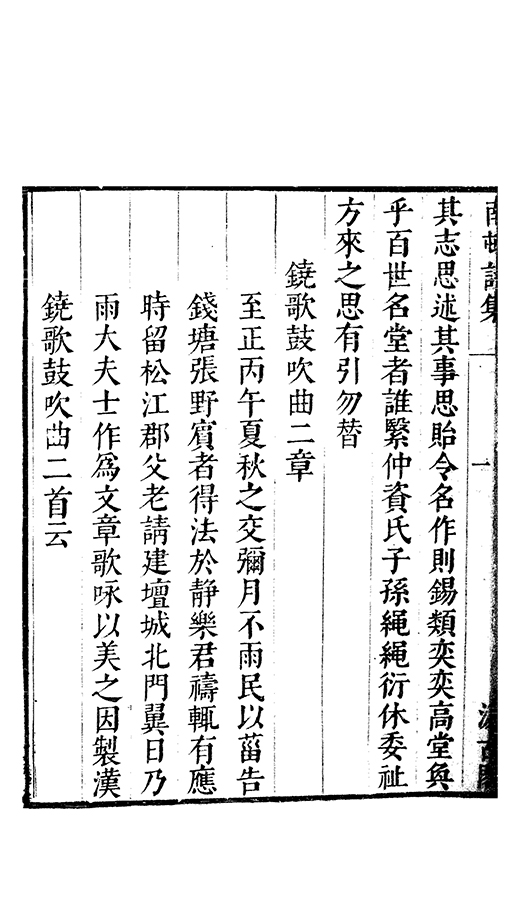 南村詩集 一 一 汲古閣
其志思述其事思貽令名作則錫類奕奕高堂奐
乎百世名堂者誰繄仲資氏子孫繩繩衍休委祉
方來之思有引勿替
鐃歌鼓吹曲二章
至正丙午夏秋之交彌月不雨民以菑告
錢塘張野賓者得法於靜樂君禱輒有應
時留松江郡父老請建壇城北門翼日乃
雨大夫士作爲文章歌咏以美之因製漢
鐃歌鼓吹曲二首云